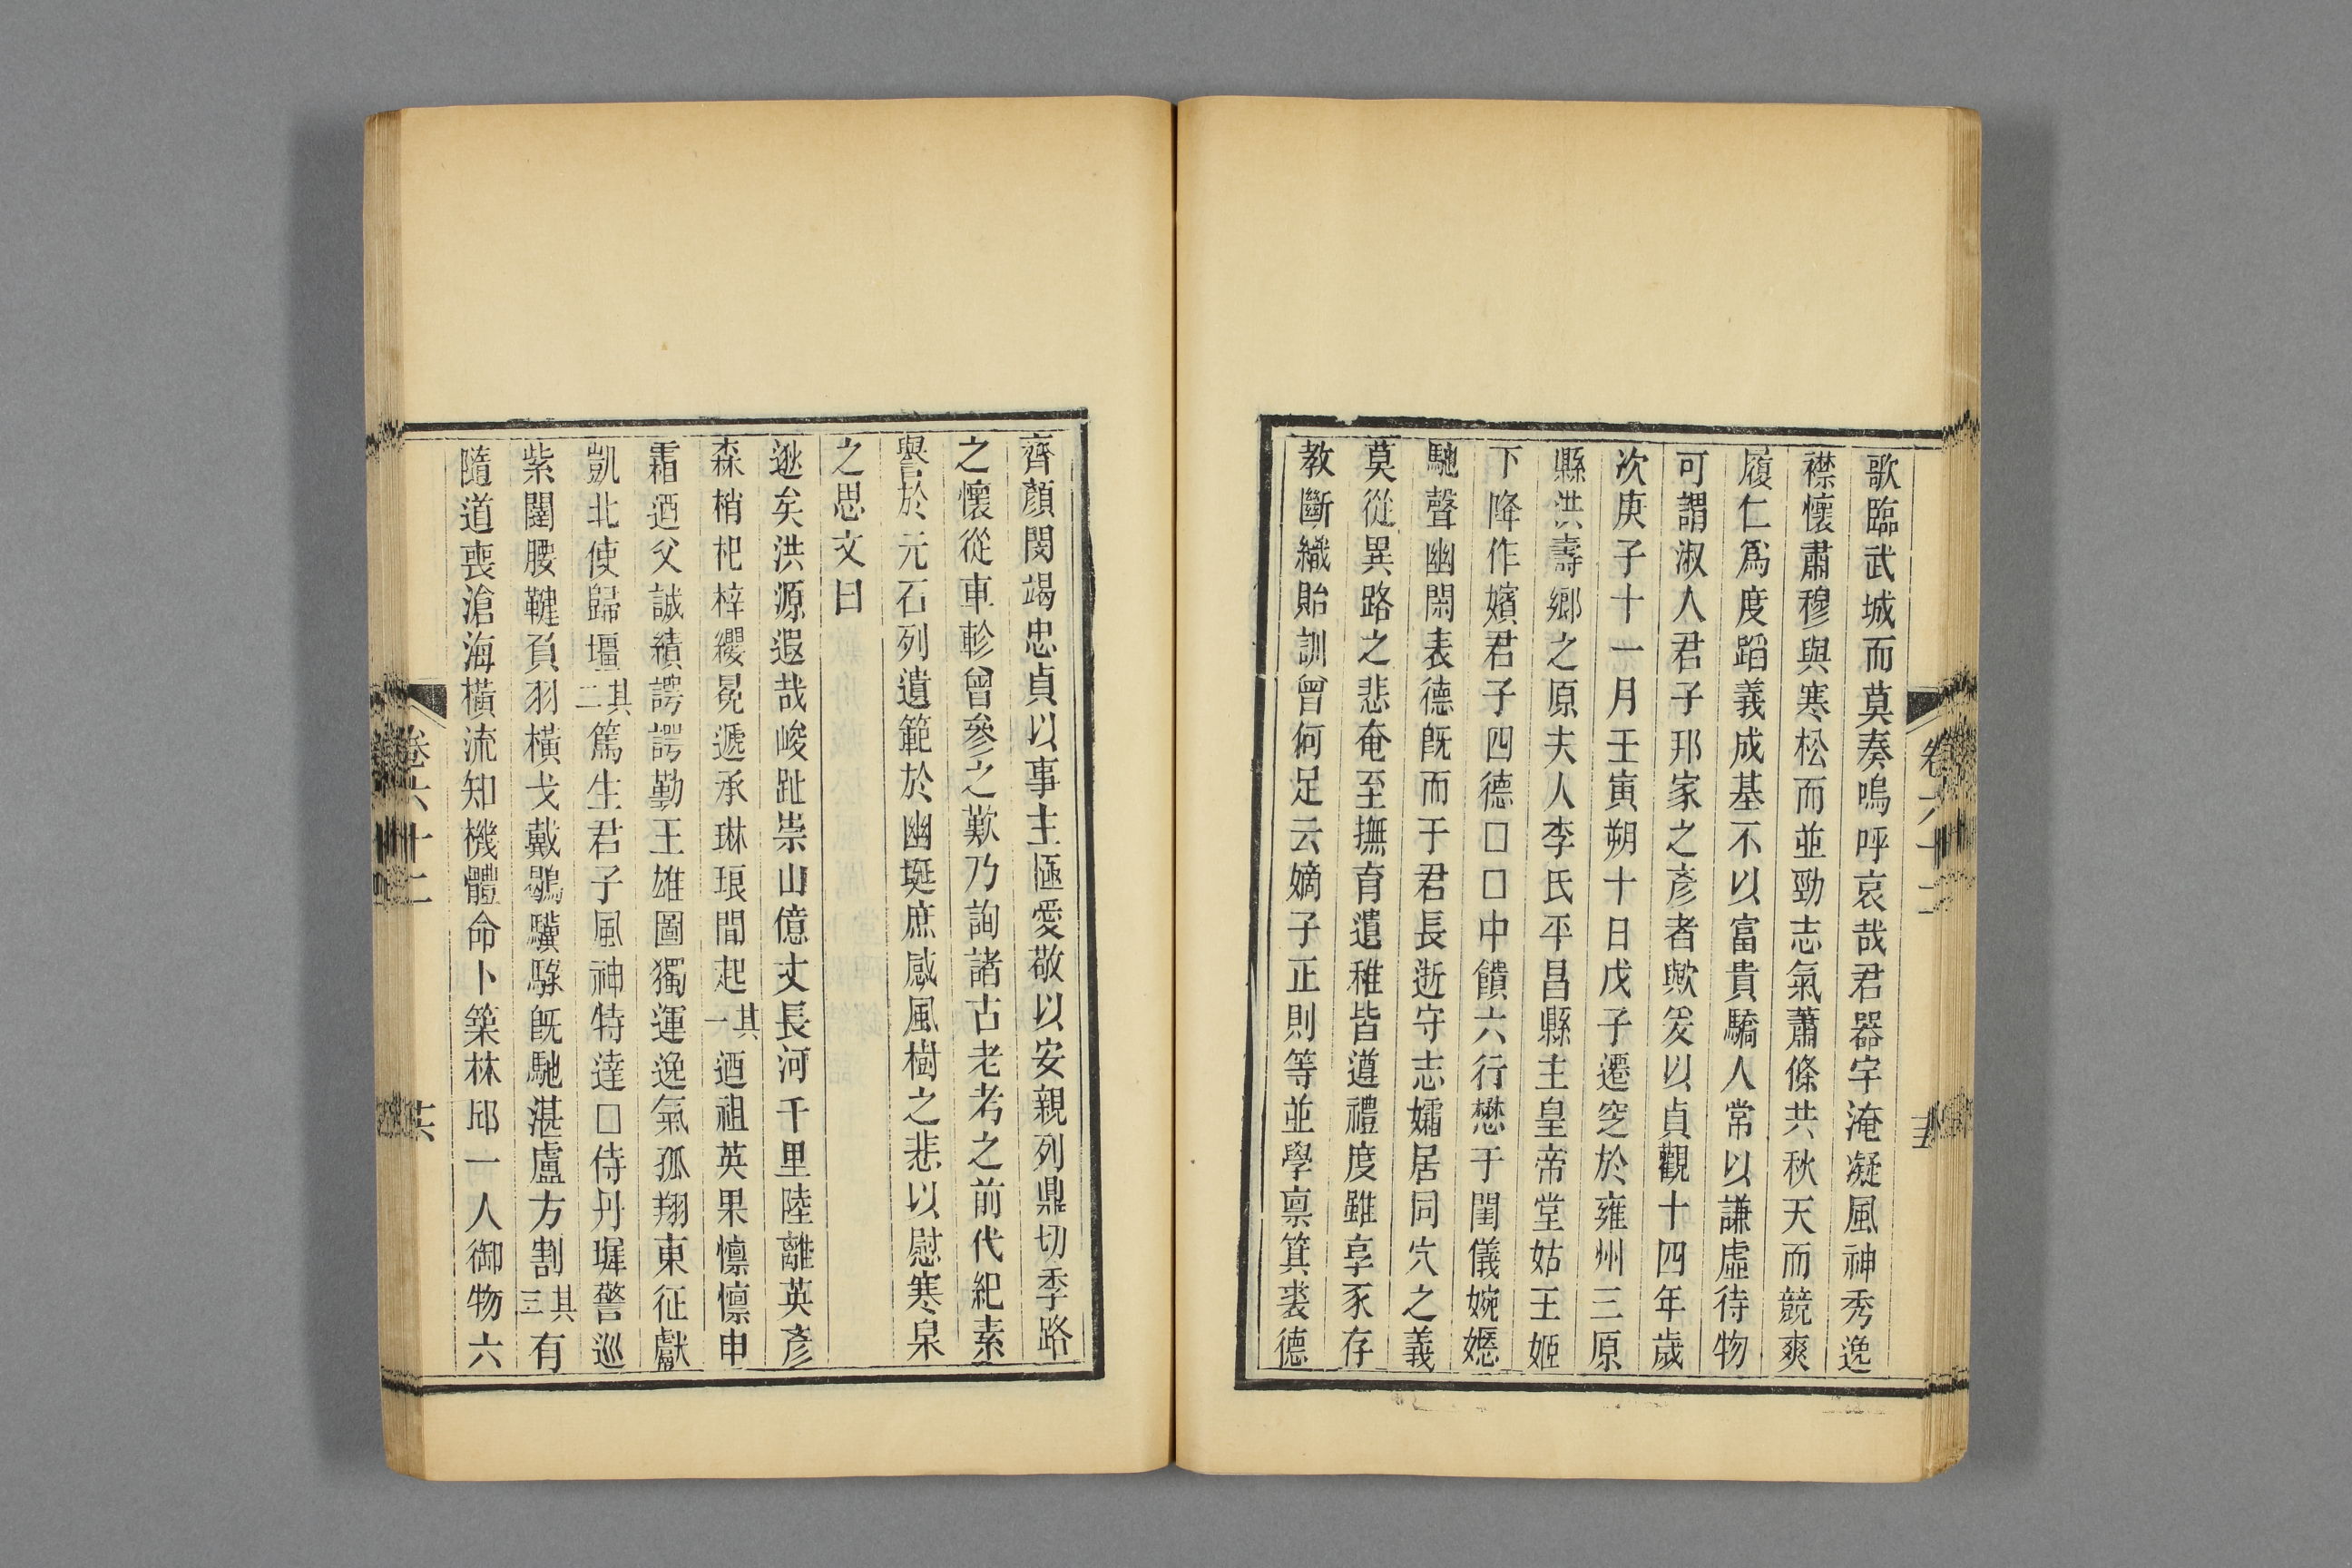 歌臨武城而莫奏嗚呼哀哉君器宇淹凝風神秀逸
襟懷肅穆與寒松而並勁志氣蕭條共秋天而競爽
履仁爲度蹈義成基不以富貴驕人常以謙虛待物
可謂淑人君子邦家之彥者歟爰以貞觀十四年歲
次庚子十一月壬寅朔十日戊子遷窆於雍州三原
縣洪壽鄉之原夫人李氏平昌縣主皇帝堂姑王姬
下降作嬪君子四德□□中饋六行懋于閨儀婉嫕
馳聲幽閑表德旣而于君長逝守志孀居同穴之義
莫從異路之悲奄至撫育遺稚皆遵禮度雖享豕存
教斷織貽訓曾何足云嫡子正則等並學禀箕裘德
卷六十二
齊顏閔竭忠貞以事主極愛敬以安親列鼎切季路
之懷從車軫曾參之歎乃詢諸古老考之前代紀素
譽於元石列遺範於幽埏庶感風樹之悲以慰寒泉
之思文曰
逖矣洪源遐哉峻趾崇山億丈長河千里陸離英彥
森梢杞梓纓冕遞承琳琅間起其一迺祖英果懍懍申
霜迺父誠績諤諤勤王雄圖獨運逸氣孤翔東征獻
凱北使歸壃其二篤生君子風神特達□侍丹墀警巡
紫闥腰鞬負羽橫戈戴鶡驥騄旣馳湛盧方割其三有
隨道喪滄海橫流知機體命卜築林邱一人御物六
卷六十二